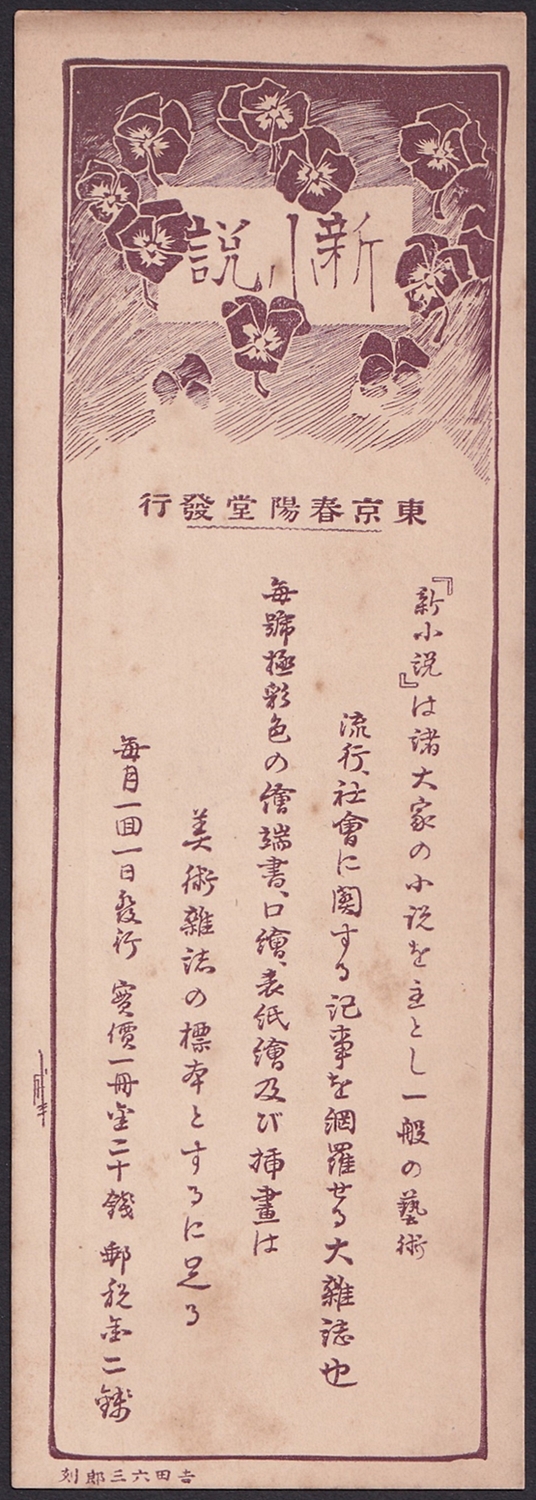 新小説
東京春陽堂發行
『新小説』は諸大家の小説を主とし一般の藝術
流行、社會に関する記事を網羅せる大雜誌也
毎號極彩色の繪端書、口繪、表紙繪及び挿畫は
美術雜誌の標本とするに足る
毎月一回一日發行 實價一冊金二十錢 郵税金二錢
吉田六三郎刻